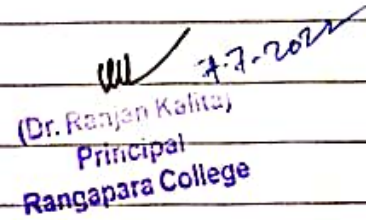 7-7-2022
(Dr. Ranjan Kalita)
Principal
Rangapara College